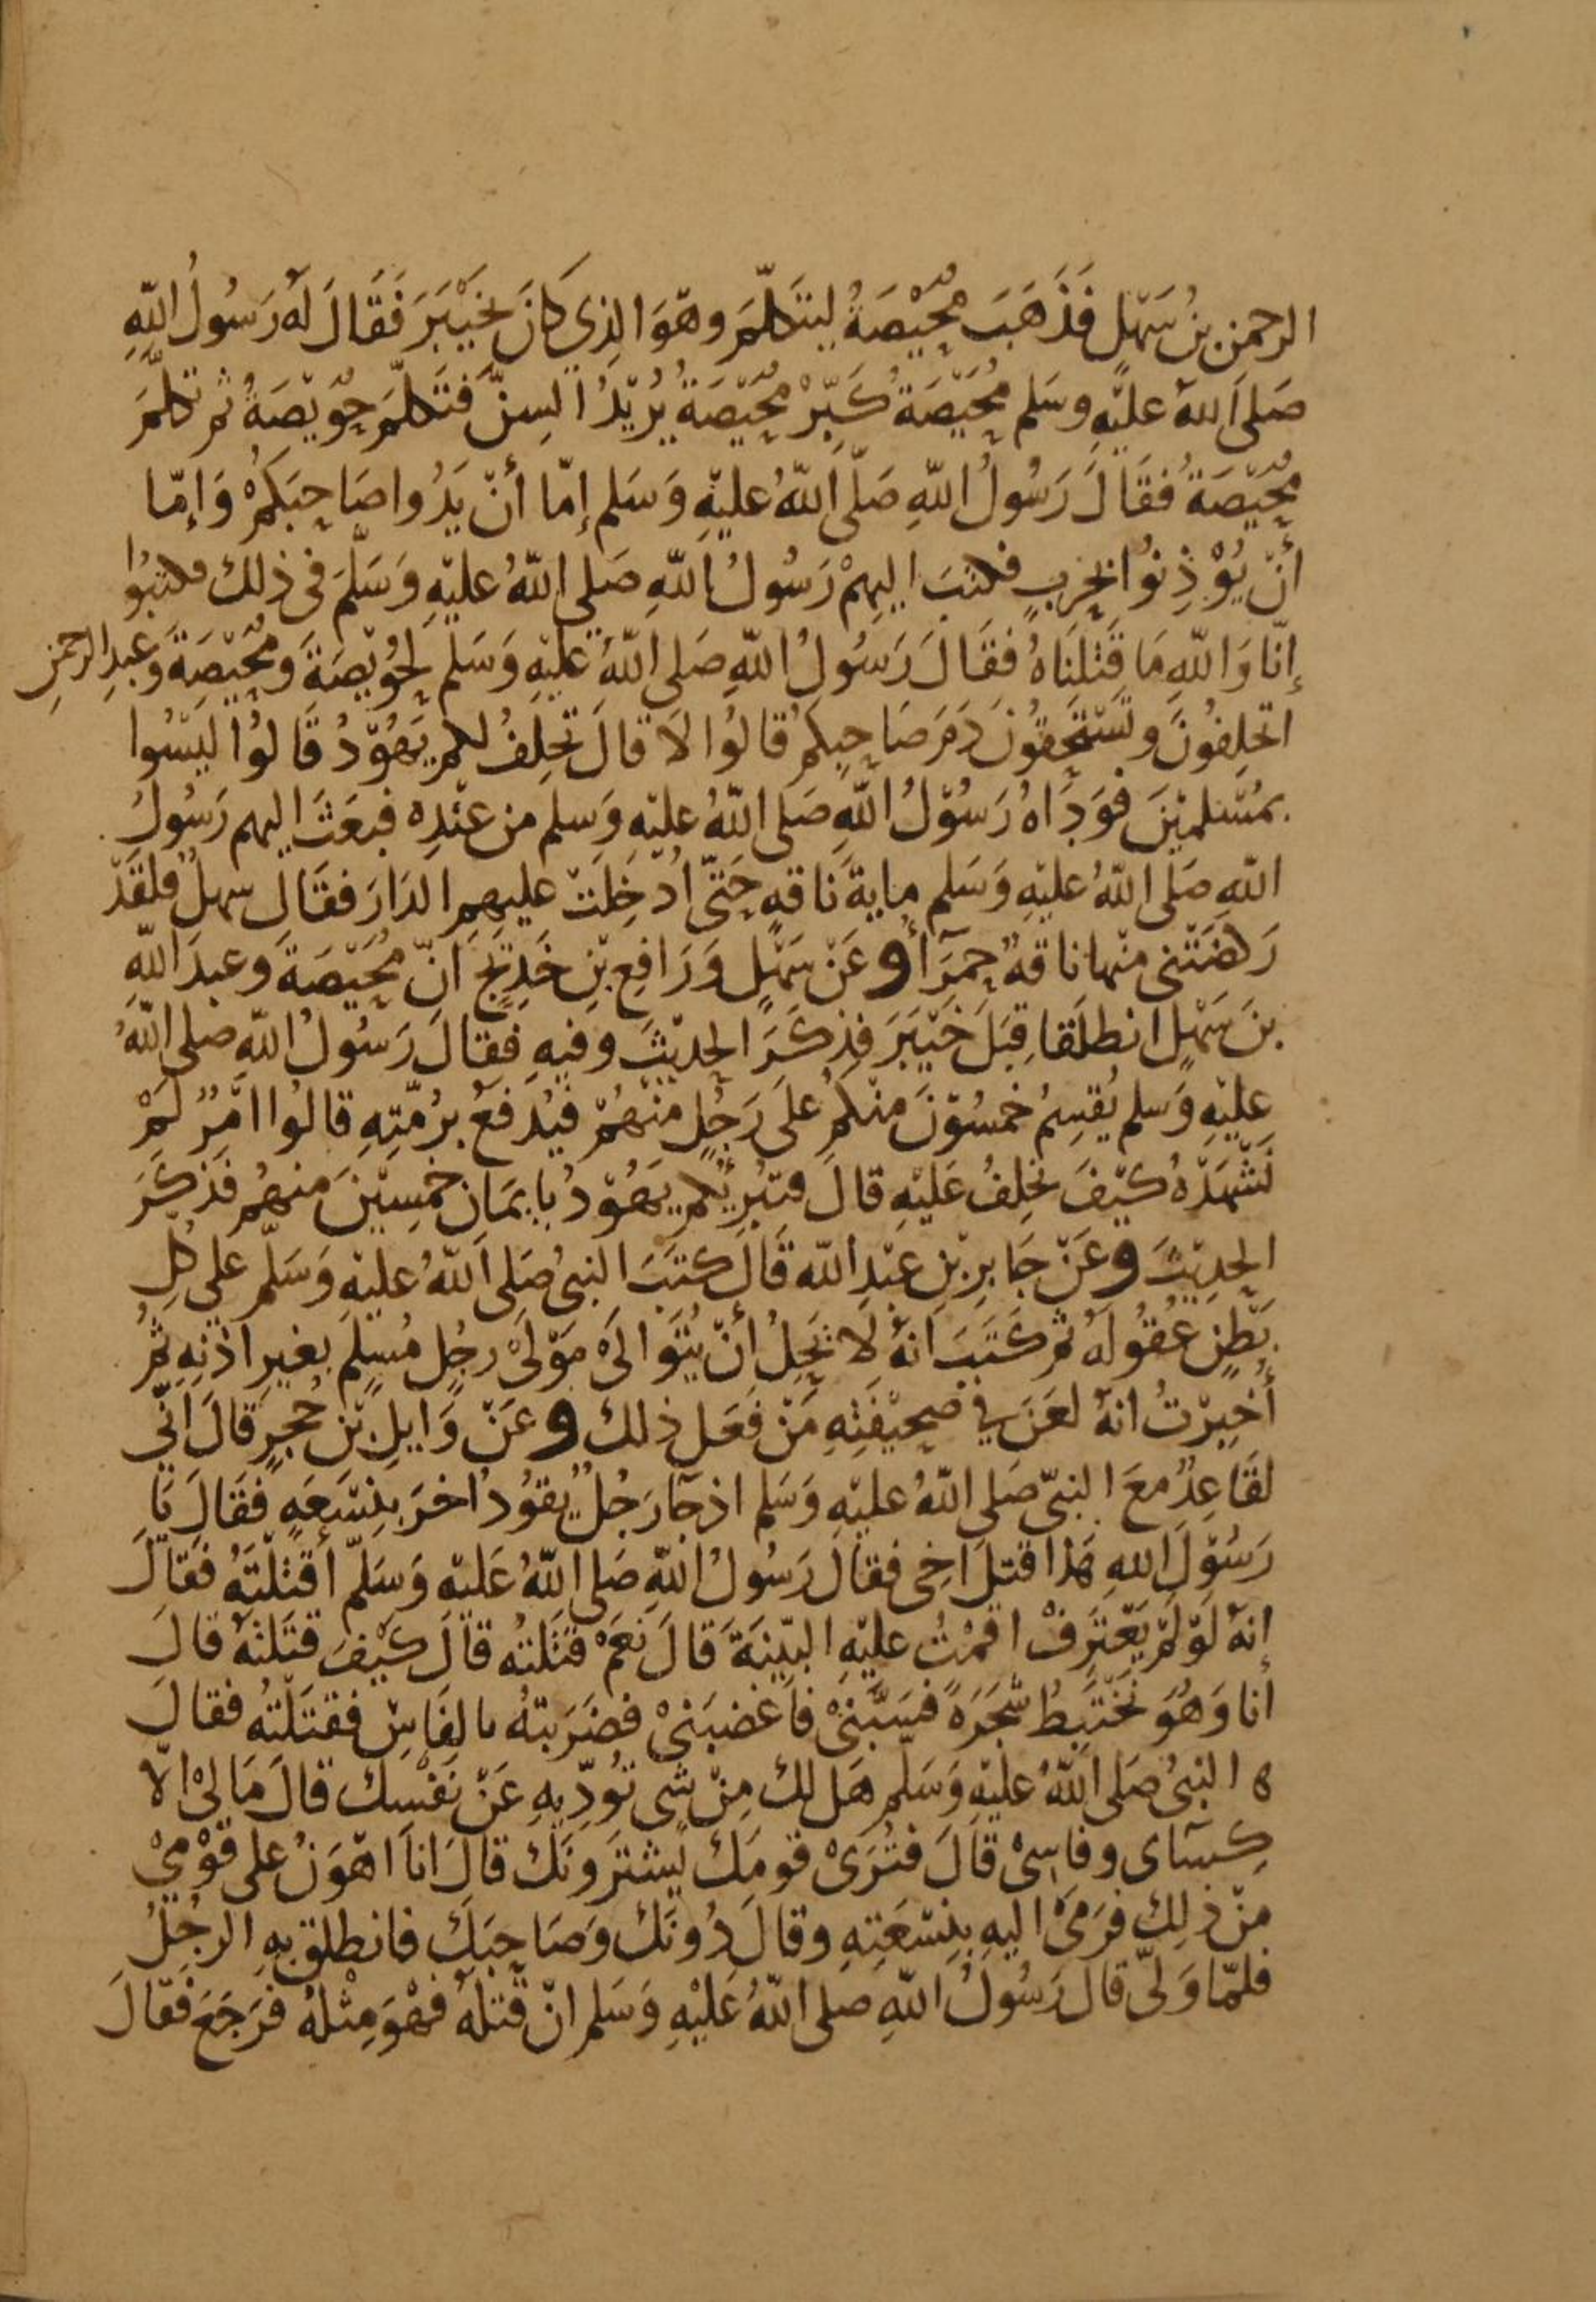 الرحمن بنُ سَهْلٍ فَذَهَبَ مُحَيِّصَةُ ليتَكَلَّمَ وهْوَ الذِي كَانَ بخَيْبَرَ فَقَالَ لَهُ رَسُولُ اللّهِ
صَلى اللهُ عليْهِ وسَلم مُحَيِّصَةُ كَبِّرْ مُحَيِّصَةُ يُرْيْدُ السِنَّ فَتَكلَّمَ حُوَيِّصَةُ ثم تكلَّمَ
مُحَيِّصَةُ فَقَالَ رَسُولُ اللّهِ صَلَّى اللّهُ عليْهِ وَسَلم إمّا أنْ يَدُوا صَاحِبَكُمْ وَإمّا
أنْ يُوْذِنُوا بحَربٍ فكتبَ اليهِمْ رَسُولُ اللّهِ صَلى اللّهُ عليْهِ وَسَلَّمَ فى ذلك فكتبُوا
إنّا وَاللّهِ مَا قَتلنَاهُ فقَالَ رَسُولُ اللّهِ صَلى اللّهُ عليْهِ وَسَلم لحُوَيِّصَةَ ومُحَيِّصَةَ وَعبدِ الرحمنِ
اتحلِفُونَ وتسْتحِقوُنَ دَمَ صَاحِبِكمْ قالُوا لَا قالَ تحلِفُ لكم يَهُوْدُ قَالوُا ليْسُوا
بمُسْلميْنَ فوَدَاهُ رَسُوْلُ اللّهِ صَلى اللّهُ عليْهِ وَسلم من عنْدِهِ فبعَثَ اليهم رَسُولُ
اللّهِ صَلّى اللّهُ عليْهِ وَسَلم مايةَ نَاقهٍ حَتّى اُدْخِلَتْ عليهِمِ الدَارَ فقَالَ سهلٌ فلقَدْ
رَكضَتْنى منْها ناقةٌ حمرَآءُ وعَنْ سَهْلٍ وَرَافِعِ بْنِ خَدِيْجٍ انّ مُحَيِّصَةَ وَعبدَ اللّهِ
بنَ سَهْلٍ انطلَقا قِبَلَ خَيْبَرَ فذِكَرَ الحديْثَ وفيهِ فقالَ رَسُولُ اللّهِ صلى اللّهُ
عليْهِ وَسلم يُقسِمُ خمسُوْنَ منْكمْ علَى رَجُلٍ منْهُمْ فيُدفَعُ برُمّتِهِ قالوُا امْرٌ لَمْ
نَشْهَدْهُ كيْفَ نحلِفُ عَليْهِ قالَ فتبْرِئُكم يَهُوْدُ بايمَانِ خمسِيْنَ منهُم فذكرَ
الحدِيْثَ وعَنْ جَابِرِ بْنِ عبْدِ اللّه قَالَ كتَبَ النبىُ صَلى اللّهُ عليْهِ وَسَلّم علي كُلِ
بَطْنٍ عُقوُلَهُ ثم كَتَبَ انهُ لَا يَحِلُ أنْ يُتَوَالَىْ مَوْلَىْ رجُلٍ مُسِلمٍ بغيرِ اذنِهِ ثُمَّ
أُخبِرْتُ انهُ لعَنَ فِي صَحِيْفتِهِ مَنْ فعَل ذلك وعَنْ وَايلِ بْن حُجرٍ قالَ انّي
لقَاعِدٌ معَ النبىّ صَلى اللّهُ عليْهِ وَسَلم اذ جآ رَجُلٌ يقوُدُ اخرَ بنِسْعَهٍ فَقَالَ يَا
رَسُوْلَ اللهِ هَذا قتلَ اخِى فقالَ رَسُولُ اللّهِ صَلى اللّهُ عَليْه وَسَلّم أقتلتَهُ فقالَ
إنهُ لَوْ لَمْ يَعْتَرِفْ اقمْتُ عليْهِ البيّنَةَ قَالَ نعَمْ قتَلتُه قالَ كيْفَ قتَلتَهُ قالَ
أنا وَهُوَ نَخْتَبِطُ شَجَرَةً فسَبَّنِىْ فأغضبَنىْ فضَرَبتهُ بالفَأسِ فقتَلتُه فقالَ
ه النبىُ صَلى اللّهُ عليْهِ وَسَلّم هَل لك مِنْ شى تُوَدِّيهِ عَنْ نَفسِك قالَ مَا لىْ الّا
كِسَآى وفاسىْ قالَ فتُرَىْ قومَك يَشْترَونَك قالَ اناَ اهْوَنُ على قَوْمِيْ
مِنْ ذلِك فرَمَىْ اليهِ بنِسْعَتِهِ وقالَ دُونَك وَصَاحِبَك فانطلقَ بهِ الرجُلُ
فلمّا وَلّى قالَ رَسُولُ اللّهِ صلى اللّهُ عَليْهِ وَسَلم انْ قَتلهُ فهْوَ مِثْلهُ فرَجَعَ فقَالَ